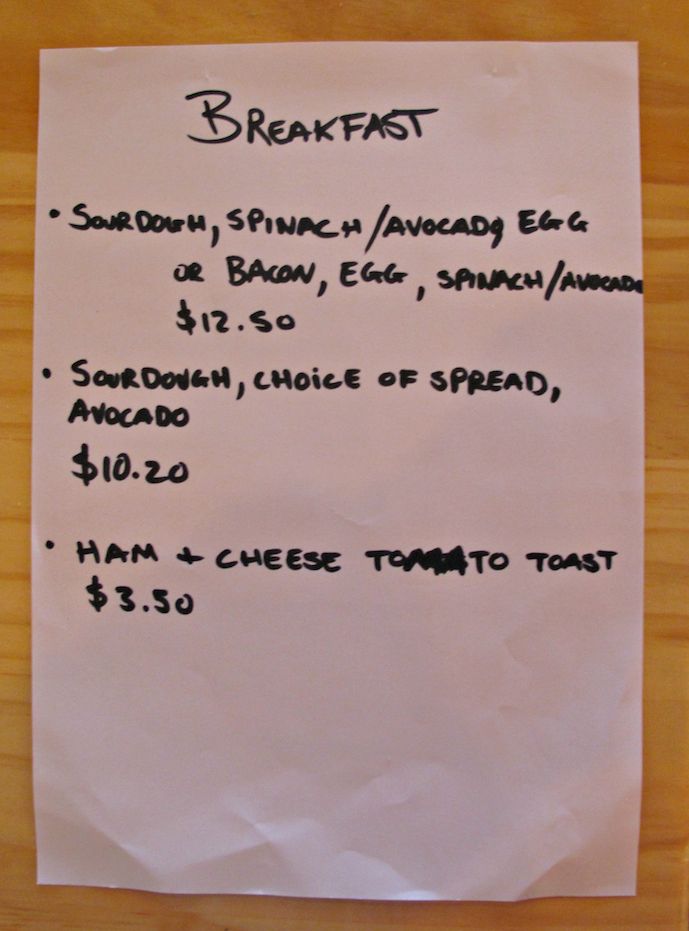 BREAKFAST
• SOURDOUGH, SPINACH/AVOCADO EGG
OR BACON, EGG, SPINACH/AVOCADO
$12.50
• SOURDOUGH, CHOICE OF SPREAD,
AVOCADO
$10.20
• HAM + CHEESE TOMATO TOAST
$3.50